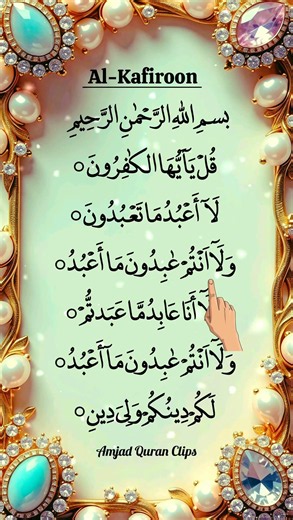 Al-Kafiroon
بِسْمِ اللهِ الرَّحْمٰنِ الرَّحِيْمِ
قُلْ يٰۤاَيُّهَا الْكٰفِرُوْنَ○
لَاۤ اَعْبُدُ مَا تَعْبُدُوْنَ○
وَلَاۤ اَنْتُمْ عٰبِدُوْنَ مَاۤ اَعْبُدُ○
وَلَاۤ اَنَا عَابِدٌ مَّا عَبَدْتُّمْ○
وَلَاۤ اَنْتُمْ عٰبِدُوْنَ مَاۤ اَعْبُدُ○
لَكُمْ دِيْنُكُمْ وَلِيَ دِيْنِ○
Amjad Quran Clips